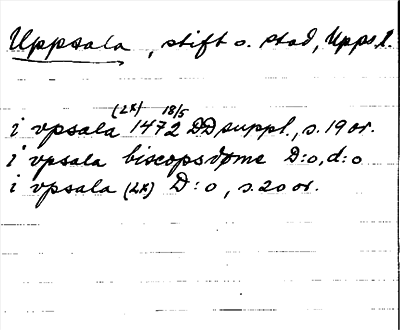 Uppsala, stift o. stad, Upps. l.
(2x) 18/5
i vpsala 1472 DD suppl., s. 19 or.
i vpsala biscopsdøme D:o, d:o
i vpsala (2x) D:o, s. 20 or.